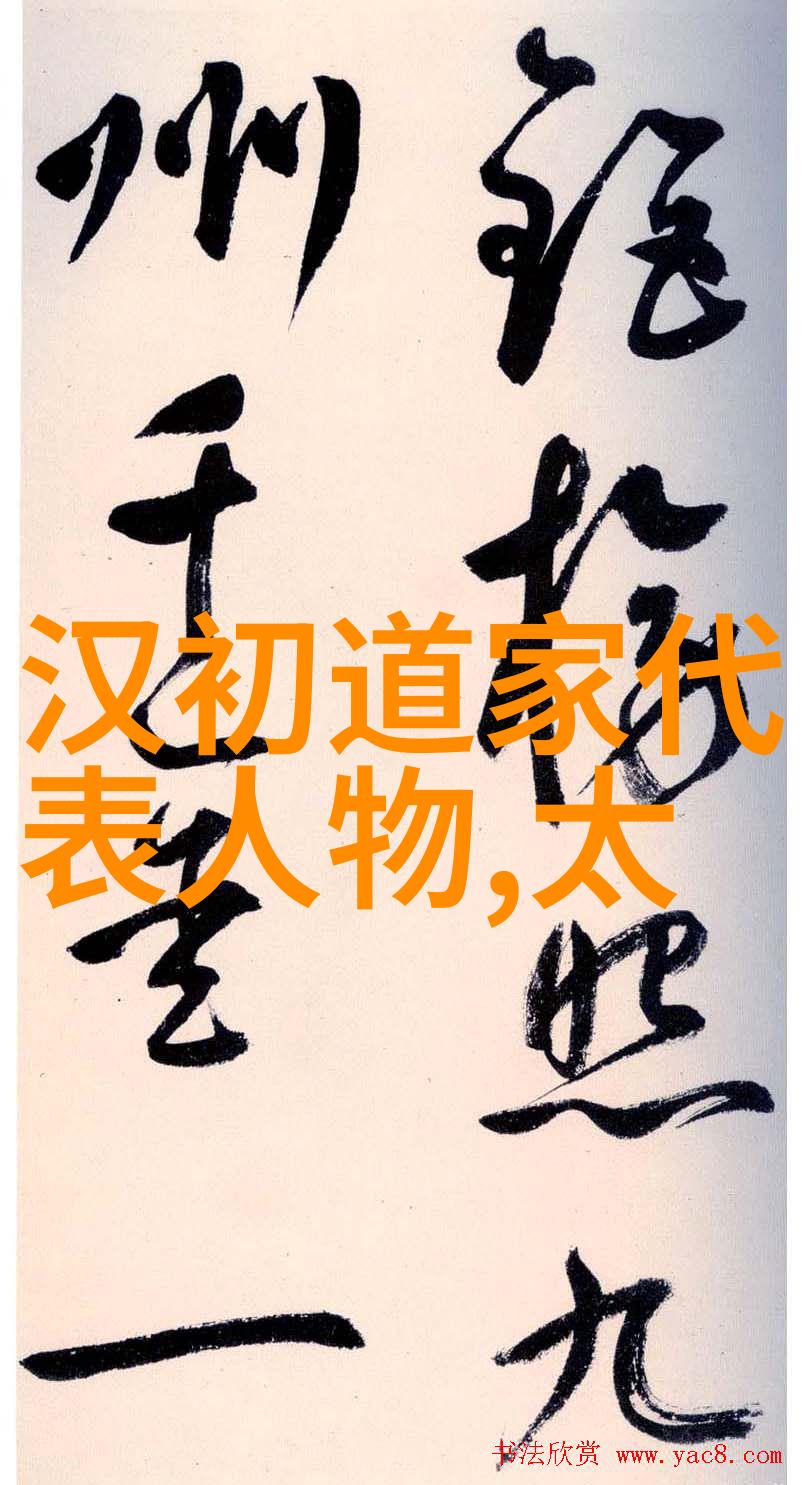 照九
州千一
汉初道家代
表人物,太
书法欣赏 www.yac8.com